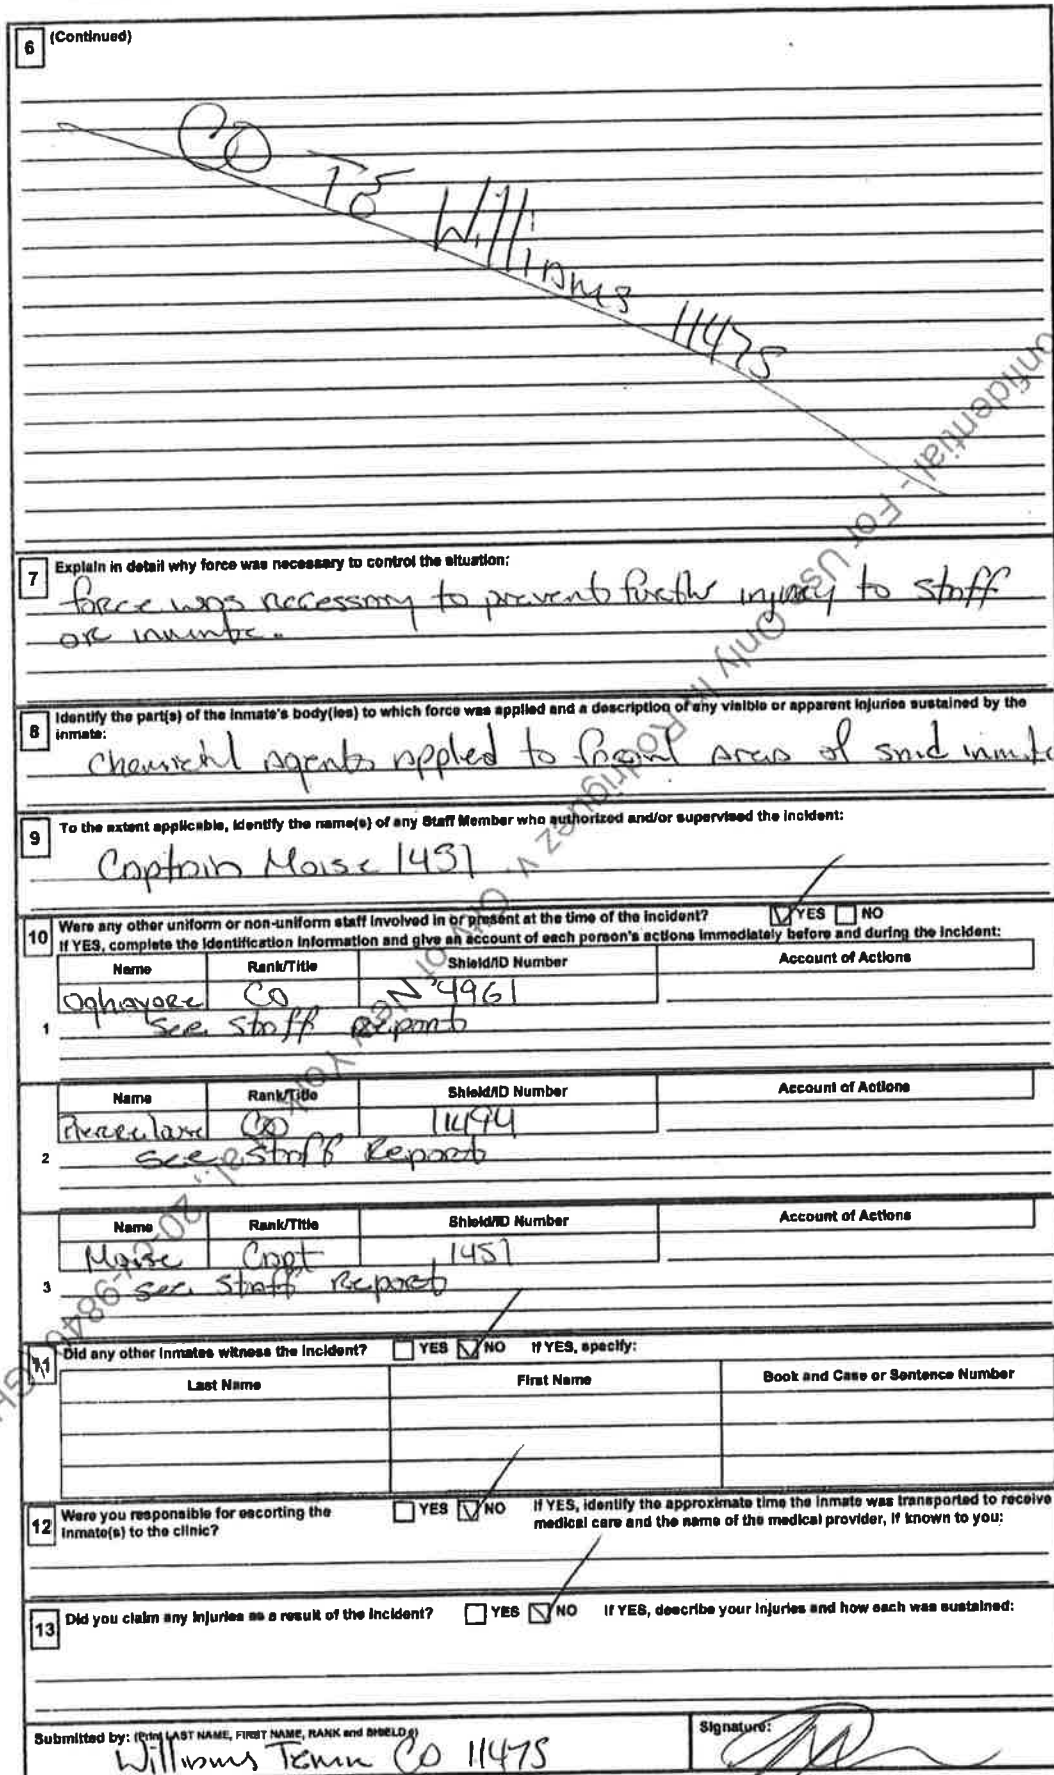 6 (Continued)
CO
Williams 11475
7 Explain in detail why force was necessary to control the situation:
force was necessary to prevent further injury to staff
or inmate.
8 Identify the part(s) of the inmate's body(ies) to which force was applied and a description of any visible or apparent injuries sustained by the
inmate:
Chemical agents applied to facial areas of said inmate
9 To the extent applicable, identify the name(s) of any Staff Member who authorized and/or supervised the incident:
Captain Moise 1451
10 Were any other uniform or non-uniform staff involved in or present at the time of the incident? YES NO
If YES, complete the identification information and give an account of each person's actions immediately before and during the incident:
Name Rank/Title Shield/ID Number Account of Actions
CO 4961
1 see staff Report
Name Rank/Title Shield/ID Number Account of Actions
CO 11494
2 see staff Report
Name Rank/Title Shield/ID Number Account of Actions
Moise Capt 1451
3 see staff Report
11 Did any other inmates witness the incident? YES NO If YES, specify:
Last Name First Name Book and Case or Sentence Number
12 Were you responsible for escorting the YES NO If YES, identify the approximate time the inmate was transported to receive
inmate(s) to the clinic? medical care and the name of the medical provider, if known to you:
13 Did you claim any injuries as a result of the incident? YES NO If YES, describe your injuries and how each was sustained:
Submitted by: (Print LAST NAME, FIRST NAME, RANK and SHIELD #) Signature:
Williams CO 11475
Confidential - For Use Only in Rodriguez v. City of New York, et al., 20-CV-9840